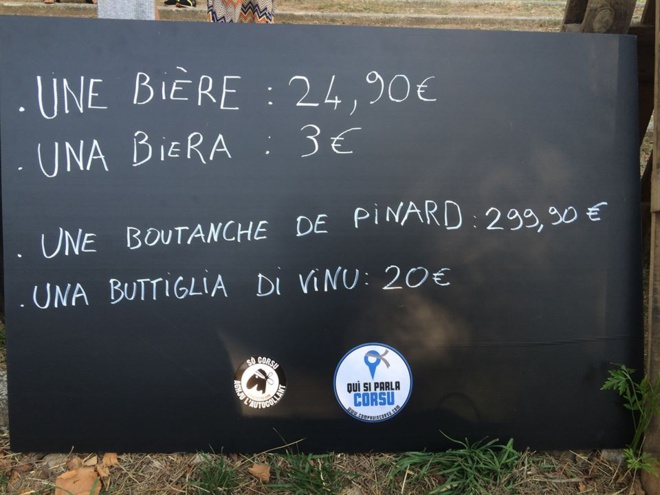 . UNE BIÈRE : 24,90€
. UNA BIERA : 3€
. UNE BOUTANCHE DE PINARD : 299,90 €
. UNA BUTTIGLIA DI VINU : 20€
SÒ CORSU
AGHJU L'AUTOCOLLANT
QUÌ SI PARLA
CORSU